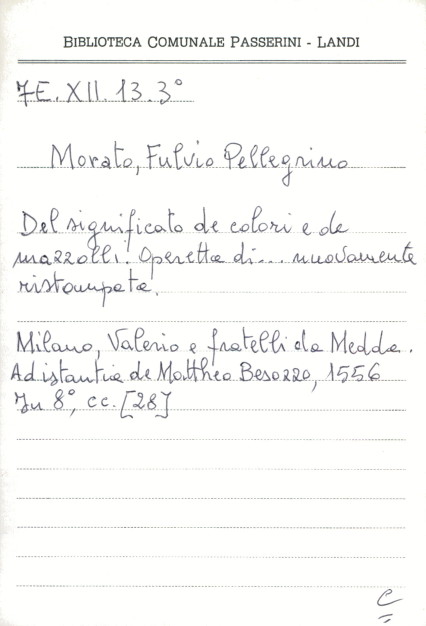 BIBLIOTECA COMUNALE PASSERINI - LANDI
7E. XII. 13. 3°
Morato, Fulvio Pellegrino
Del significato de colori e de
mazzolli. Operetta di... nuovamente
ristampata.
Milano, Valerio e fratelli da Medda.
Ad istantia de Mattheo Besozzo, 1556
In 8°, cc. [28]
C